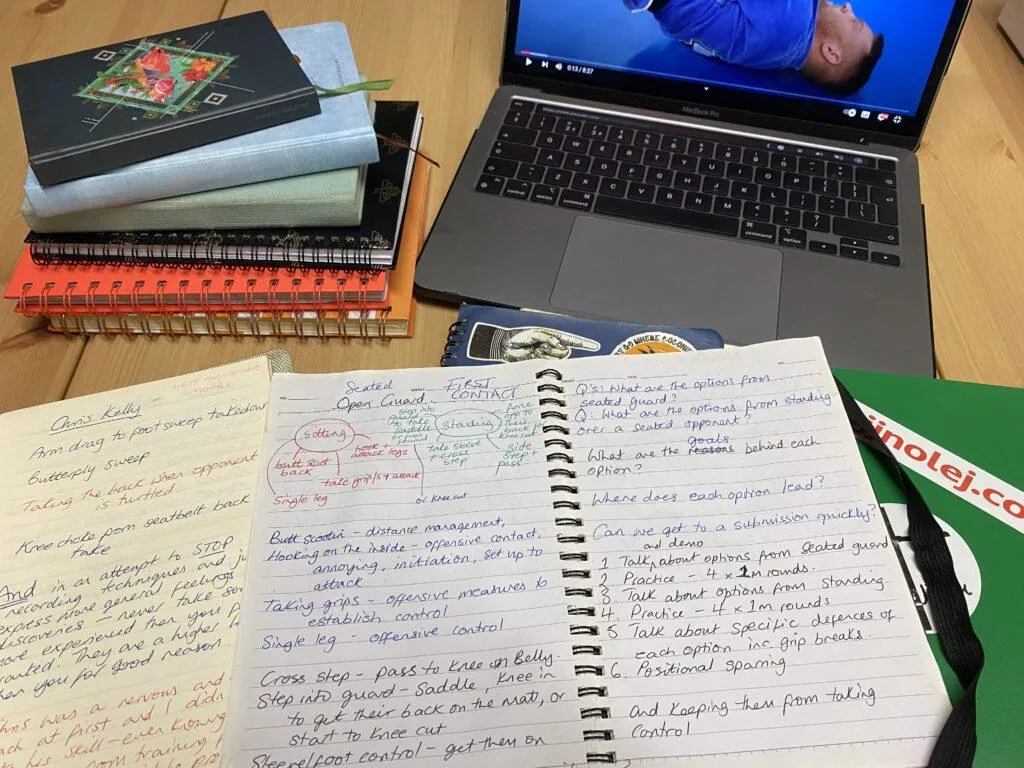 0:13 / 8:27
MacBook Pro
control
option
command
command
option
GO WHERE
Chris Kelly -
Arm drag to foot sweep takedown
Butterfly sweep
Taking the back when opponent
is turtled.
Knee choke from seatbelt back
take
And in an attempt to STOP
recording techniques and
express more general feelings
discoveries - never take
more experienced then you
They are a higher
than you for good reason.
Chris was a nervous and
at first and I
his skill - even knowing
from training
Seated FIRST
Open Guard - CONTACT
sitting
butt scoot
back
hook +
attack legs
take grips + attack
Single leg
Step into
guard
to take
Saddle
Standing
force
opp to
their
back for
knee cut
Take sleeve
+ cross
step
side
step +
pass
or knee cut
Butt Scootin - distance management,
Hooking on the inside - offensive contact,
annoying, initiation, set up to
attack
Taking grips - offensive measures to
establish control
Single leg - offensive control
Cross step - pass to knee on Belly.
Step into guard - Saddle, knee in
to get their back on the mat, or
start to knee cut
Sleeve/foot control - get them on
Q's: What are the options from
seated guard?
Q: What are the options from standing
over a seated opponent?
goals
What are the reasons behind each
option?
Where does each option lead?
Can we get to a submission quickly?
and demo
1 Talk about options from seated guard
2 Practice - 4 x 1m rounds.
3. Talk about options from standing
4. Practice - 4 x 1m rounds
5 Talk about specific defences of
each option inc. grip breaks.
6. Positional sparring
and keeping them from taking
control
inolej.co